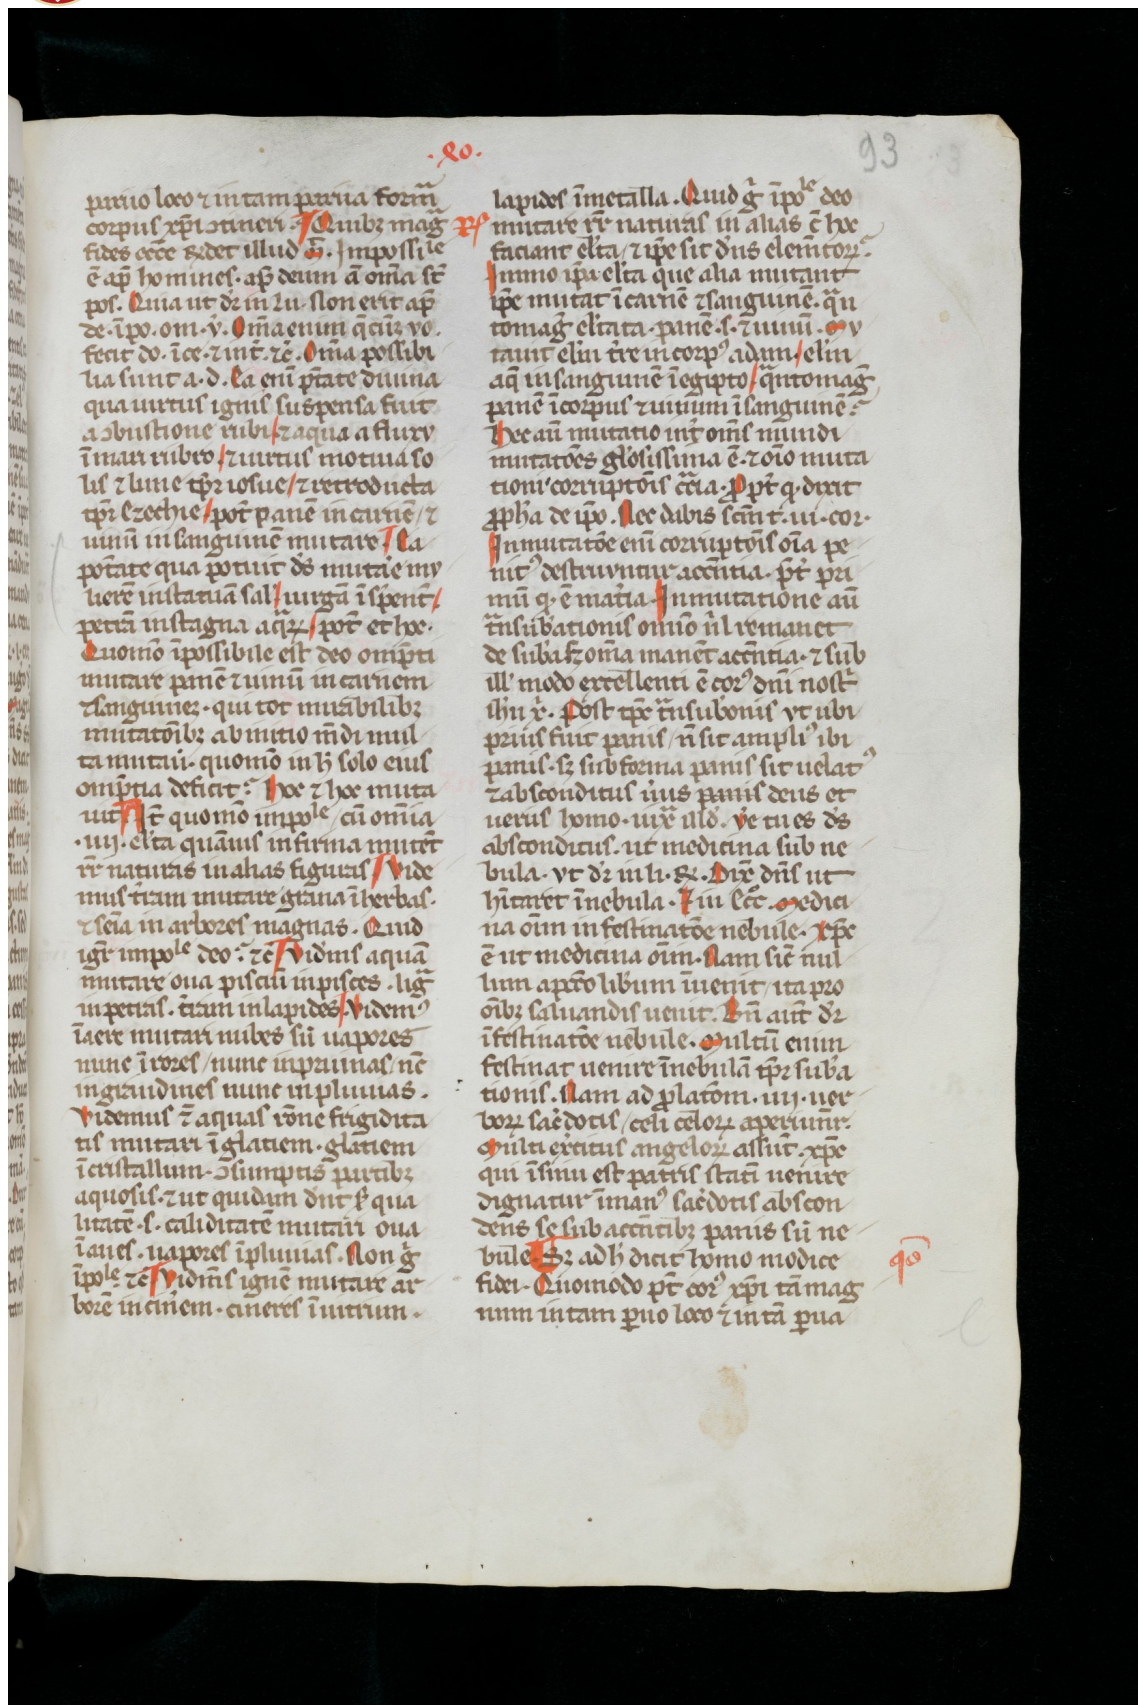 .xo.
93
paruo loco ⁊ in tam parua forma̅
corpus xp̅i ↄtineri. ¶ Quibꝫ mag̅
R̅
fides ecc̅e r̅det illud m̅. Impossile
e̅ ap̅ homines. ap̅ deum a̅ om̅ia st̅
pos. Quia ut dr̅ in lu. Non erit ap̅
de. i̅po. om. v̅. Om̅ia enim q̅cu̅qꝫ vo.
fecit do. i̅ce. ⁊ int̅. ⁊c̅. Om̅ia possibi
lia sunt a. d. Ea eni̅ p̅tate diuina
qua uirtus ignis suspensa fuit
a ↄbustione rubi / ⁊ aqua a fluxu
i̅ mari rubro / ⁊ uirtus motiua so
lis ⁊ lune tp̅r iosue / ⁊ retroducta
tp̅r ezechie / pot̅ pane̅ in carne̅ / ⁊
uinu̅ in sanguinem mutare ¶ Ea
potate qua potuit d̅s mutare mu
lierem in statuam sal / uirga̅ i̅ s̅pent̅ /
petra̅ in stagna aq̅ꝝ / pot̅ et hoc.
Quomo̅ i̅possibile est deo omp̅ti
mutare pane̅ ⁊ uinu̅ in carnem
⁊ sanguinez. qui tot mirabilibꝫ
mutatoi̅bꝫ ab initio mu̅di mul
ta mutaui. quomo̅ in h̅ solo eius
omp̅tia deficit.̅ Hoc ⁊ hoc muta
uit ¶ It̅ quomo̅ impole / cu̅ omnia
.iiij. el̅ta qua̅uis infirma mute̅t
rr̅ naturas in alias figuras ¶ Vide
mus t̅ram mutare gr̅ana i̅ herbas.
⁊ sei̅a in arbores magnas. Quid
igr̅ impole deo.̅ ⁊c̅ ¶ Vidm̅s aqua̅
mutare oua pisciu̅ in pisces. lig̅
in petras. t̅ram in lapides / Videmꝰ
i̅ aere mutari nubes siu̅ uapores
nunc i̅ rores / nunc in pruinas / nc̅
in grandines nunc in pluuias.
Videmus e̅ aquas ro̅ne frigidita
tis mutari i̅ glatiem. glatiem
i̅ cristallum. ↄsumptis partibꝫ
aquosis. ⁊ ut quidam dnt̅ p̅ qua
litate̅ .s. caliditate̅ mutari oua
i̅ aues. uapores i̅ pluuias. Non g̅
i̅pole ⁊c̅ ¶ Vidim̅s igne̅ mutare ar
bore̅ in cin̅em. cineres i̅ uitrum.
lapides i̅ metalla. Quid g̅ i̅pole deo
mutare rr̅ naturas in alias c̅ hoc
faciant el̅ta / ⁊ ip̅e sit d̅ns elemtorꝝ.̅
Immo ip̅a el̅ta que alia mutant
ip̅e mutat i̅ carne̅ ⁊ sanguine̅. q̅n
tomag̅ el̅tata. pane̅ .s. ⁊ uinu̅. Mu
tauit el̅m t̅re in corpꝰ adam / el̅m
aq̅ in sanguine̅ i̅ egipto / q̅ntomag̅
pane̅ i̅ corpus ⁊ uinum i̅ sanguine̅.̅
Hec au̅ mutatio int̅ om̅s mundi
mutato̅es gl̅osissima e̅. ⁊ oi̅o muta
tioni corrupto̅is c̅tria. Propt̅ q. dixit
ꝓpha de ip̅o. Nec dabis scm̅ t. ui. cor.
In mutato̅e eni̅ corrupto̅is oi̅a pe
nitꝰ destruuntur acce̅ntia. p̅t pri
mu̅ q. e̅ mat̅ia. In mutatione au̅
t̅nsub̅ationis omi̅o ni̅l remanet
de sub̅a sꝫ om̅ia mane̅t acce̅ntia. ⁊ sub
ill̅ modo excellenti e̅ corꝰ dn̅i nost̅
ih̅u x̅. Post tp̅e t̅nsubonis ut ubi
prius fuit panis / n̅ sit ampliꝰ ibi
panis. sꝫ sub forma panis sit uelatꝰ
⁊ absconditus uius panis deus et
uerus homo. iux̅ illd̅. V̅e tu es d̅s
absconditus. ut medicina sub ne
bula. ut dr̅ in li. R̅. Dix̅ dn̅s ut
hi̅taret i̅ nebula. Et in ecc̅. Medici
na oi̅m in festinato̅e nebule. Xp̅e
e̅ ut medicina oi̅m. Nam sic̅ nul
lum apc̅to libum i̅uenit / ita pro
oi̅bꝫ saluandis uenit. Bn̅ aut̅ dr̅
i̅ festinato̅e nebule. Multu̅ enim
festinat uenire i̅ nebula̅ tp̅r sub̅a
tionis. Nam ad ꝓlato̅m. iiij. uer
borꝝ sac̅dotis / celi celorꝝ aperiunt̅.
Multi ex̅citus angelorꝝ assu̅t. xp̅e
qui i̅ sinu est patris stati̅ uenire
dignatur i̅ manꝰ sac̅dotis abscon
dens se sub acce̅ntibꝫ panis siu̅ ne
bule. ¶ Sꝫ ad h̅ dicit homo modice
qo̅
fidei. Quomodo p̅t corꝰ xp̅i ta̅ mag
num in tam p̲uo loco ⁊ in ta̅ p̲ua